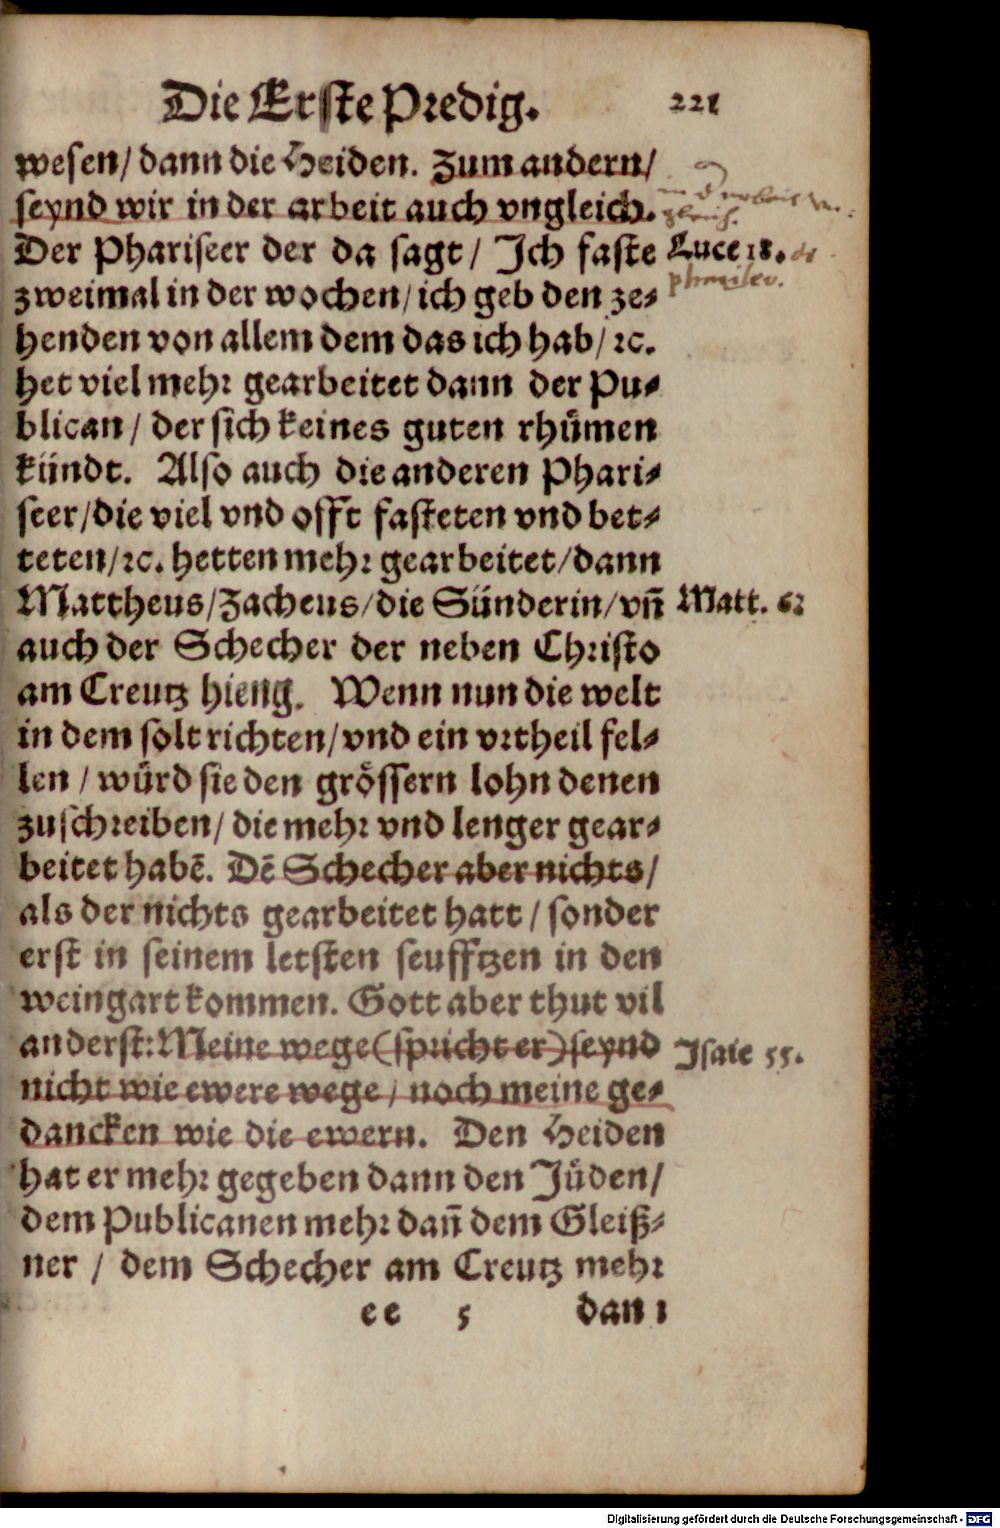 Die Erste Predig. 221
wesen/ dann die Heiden. Zum andern/
seynd wir in der arbeit auch vngleich.
in d arbeit vn-
gleich.
Der Phariseer der da sagt/ Ich faste
Luce 18.
zweimal in der wochen/ ich geb den ze⸗
henden von allem dem das ich hab/ ꝛc.
het viel mehꝛ gearbeitet dann der Pu⸗
blican/ der sich keines guten rhuͤmen
kuͤndt. Also auch die anderen Phari⸗
seer/ die viel vnd offt fasteten vnd bet⸗
teten/ ꝛc. hetten mehꝛ gearbeitet/ dann
Mattheus/ Zacheus/ die Suͤnderin/ vñ
Matt. 62
auch der Schecher der neben Chꝛisto
am Creutz hieng. Wenn nun die welt
in dem solt richten/ vnd ein vꝛtheil fel⸗
len / wuͤrd sie den groͤssern lohn denen
zuschꝛeiben/ die mehꝛ vnd lenger gear⸗
beitet habẽ. Dẽ Schecher aber nichts/
als der nichts gearbeitet hatt/ sonder
erst in seinem letsten seufftzen in den
weingart kommen. Gott aber thut vil
anderst: Meine wege (spricht er) seynd
Isaie 55.
nicht wie ewere wege/ noch meine ge⸗
dancken wie die ewern. Den Heiden
hat er mehꝛ gegeben dann den Juͤden/
dem Publicanen mehꝛ dañ dem Gleiß⸗
ner / dem Schecher am Creutz mehꝛ
ee 5 dan
Digitalisierung gefördert durch die Deutsche Forschungsgemeinschaft - DFG